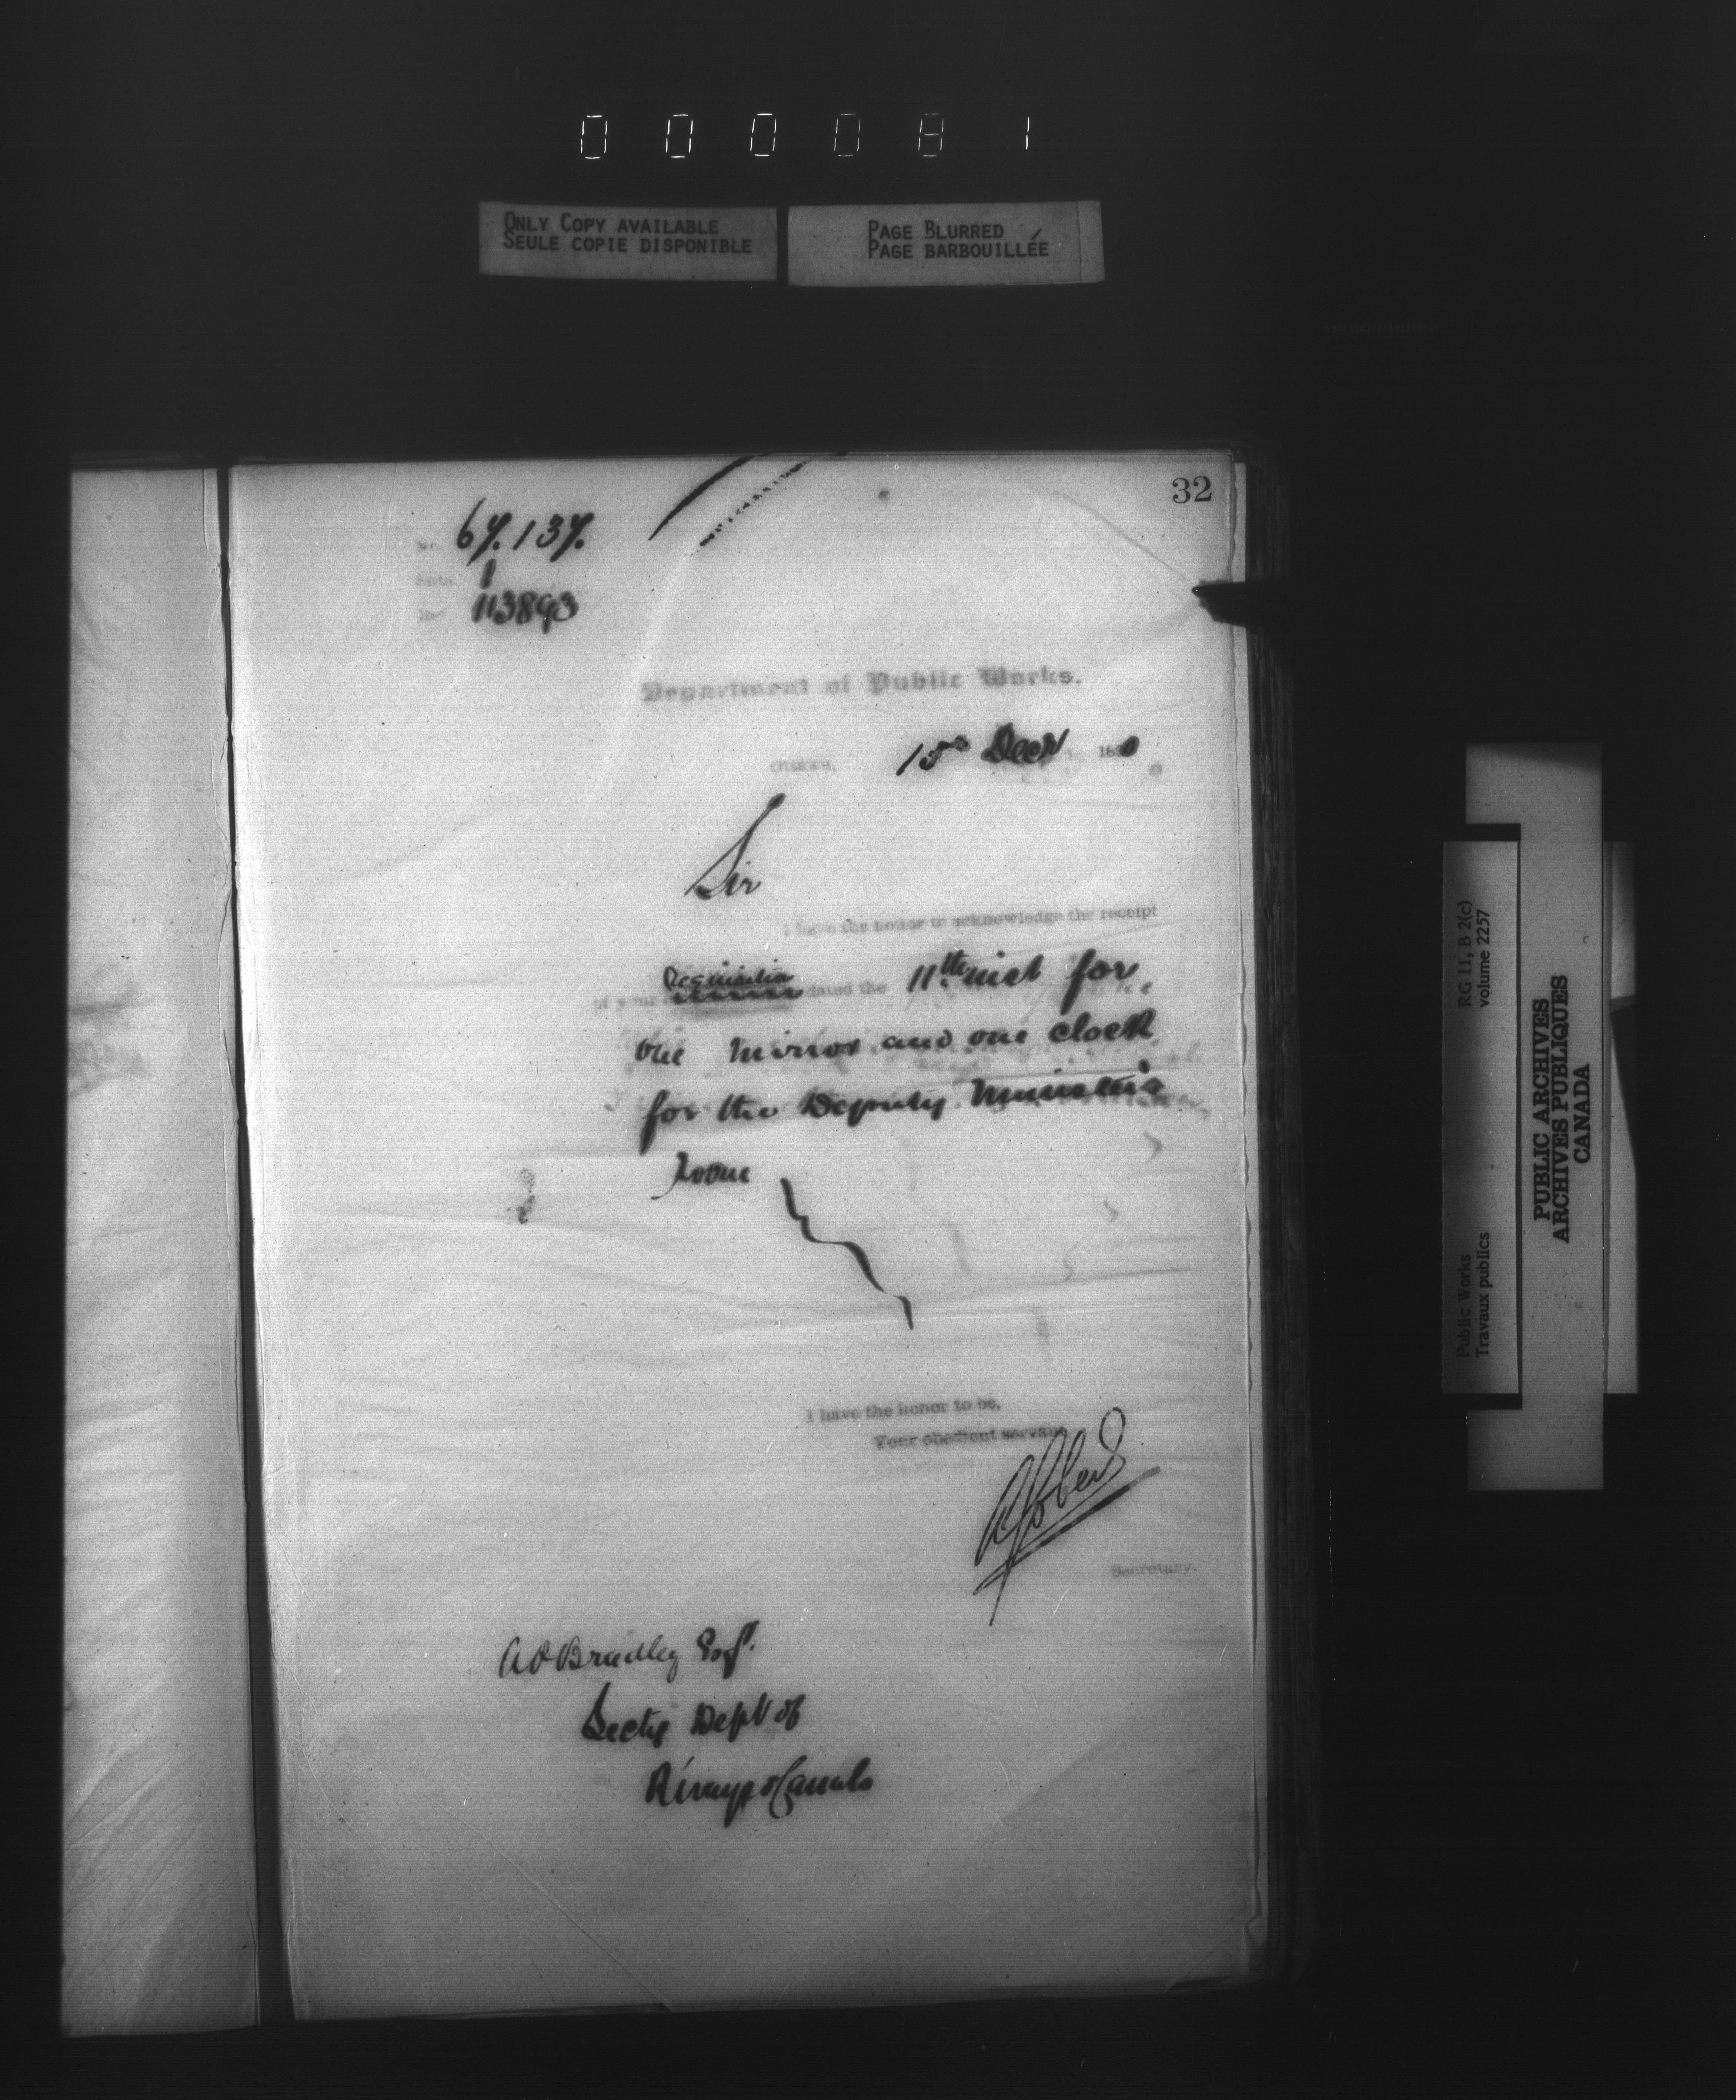 000081
ONLY COPY AVAILABLE
SEULE COPIE DISPONIBLE
PAGE BLURRED
PAGE BARBOUILLÉE
32
No. 67.137.
Subs. 1
113893
Department of Public Works.
Ottawa, 15th Decr 1890
Sir
I have the honor to acknowledge the receipt
of your Requisition dated the 11th inst for
one mirror and one clock
for the Deputy Minister's
room
I have the honor to be,
Your obedient servant
Secretary.
A P Bradley Esqr.
Secty Dept of
R'ways & Canals
Public Works
Travaux publics
RG 11, B 2(c)
volume 2257
PUBLIC ARCHIVES
ARCHIVES PUBLIQUES
CANADA